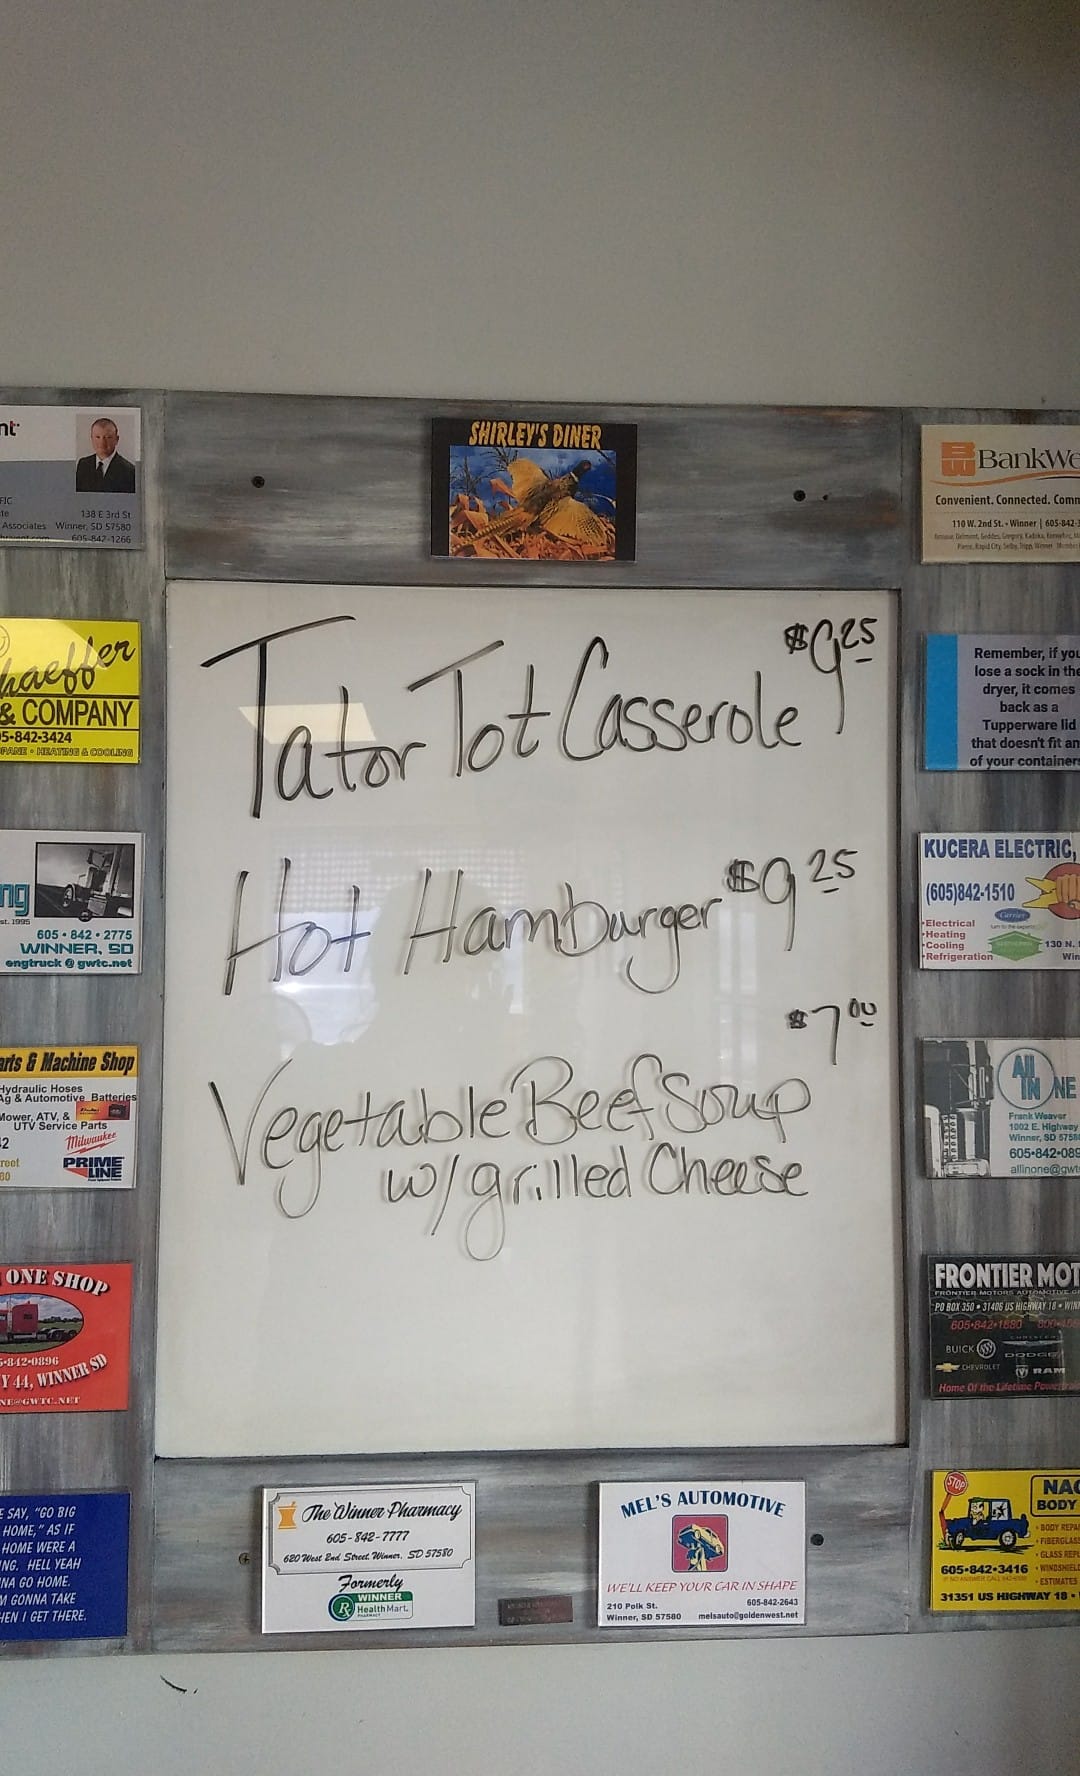 SHIRLEY'S DINER
138 E 3rd St
Associates Winner, SD 57580
605-842-1266
BankWe
Convenient. Connected. Comm
110 W. 2nd St. • Winner | 605-842-
$9.25
Tator Tot Casserole
Hot Hamburger $9.25
$7.00
Vegetable Beef Soup
w/grilled Cheese
haeffer
& COMPANY
05-842-3424
PANE • HEATING & COOLING
Remember, if you
lose a sock in the
dryer, it comes
back as a
Tupperware lid
that doesn't fit an
of your containers
ng
st. 1995
605 • 842 • 2775
WINNER, SD
engtruck @ gwtc.net
KUCERA ELECTRIC,
(605)842-1510
Carrier
•Electrical
•Heating
•Cooling
•Refrigeration
130 N.
Win
arts & Machine Shop
Hydraulic Hoses
Ag & Automotive Batteries
Mower, ATV, &
UTV Service Parts
Milwaukee
PRIME
LINE
All
IN NE
Frank Weaver
1002 E. Highway
Winner, SD 5758
605•842•089
allinone@gwt
ONE SHOP
5•842•0896
Y 44, WINNER SD
NE@GWTC.NET
FRONTIER MOT
FRONTIER MOTORS AUTOMOTIVE G
PO BOX 350 • 31406 US HIGHWAY 18 • WIN
605•842•1880
BUICK
CHRYSLER
DODGE
CHEVROLET
RAM
Home Of the Lifetime Powertrai
E SAY, "GO BIG
HOME," AS IF
HOME WERE A
NG. HELL YEAH
NA GO HOME.
M GONNA TAKE
HEN I GET THERE.
The Winner Pharmacy
605-842-7777
620 West 2nd Street, Winner, SD 57580
Formerly
WINNER
HealthMart
PHARMACY
MEL'S AUTOMOTIVE
WE'LL KEEP YOUR CAR IN SHAPE
210 Polk St. 605-842-2643
Winner, SD 57580 melsauto@goldenwest.net
STOP
NAG
BODY
• BODY REPA
• FIBERGLAS
• GLASS REPL
• WINDSHIEL
• ESTIMATES
605•842•3416
31351 US HIGHWAY 18 •